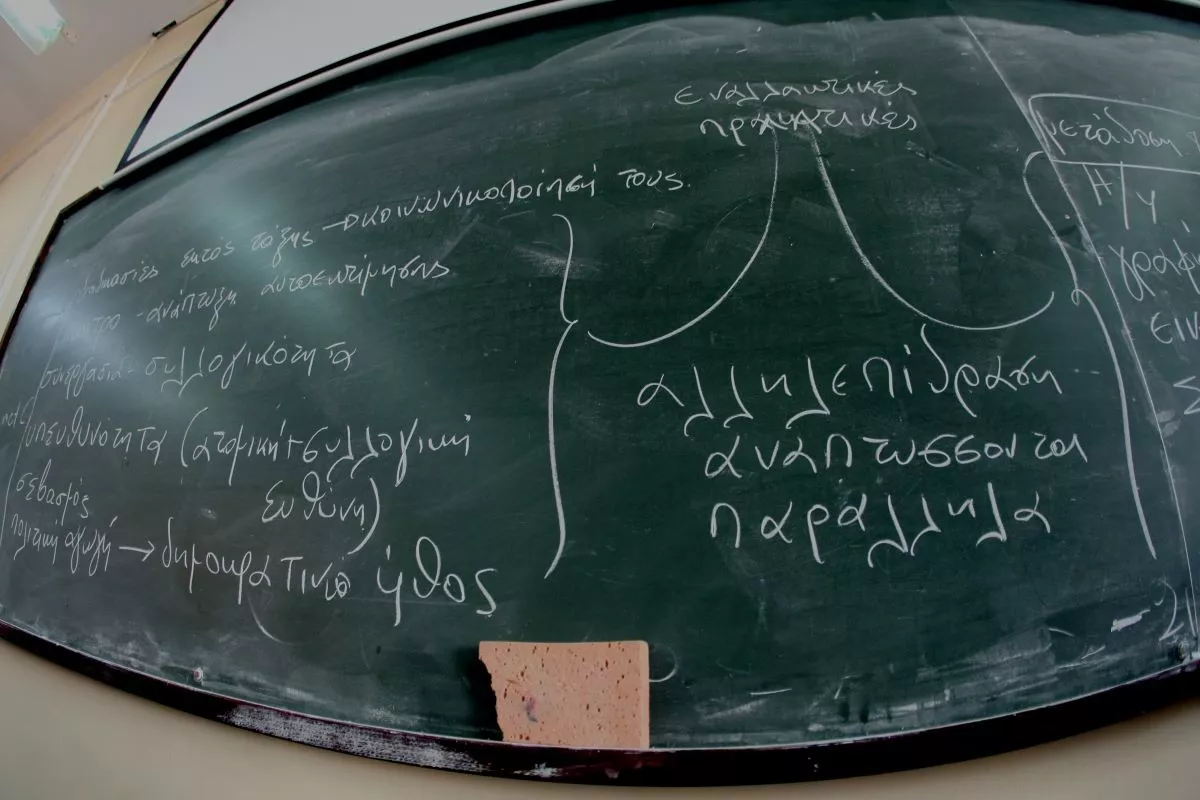 εναλλακτικές
πρακτικές
εκτός τάξης → κοινωνικοποίησή τους.
- ανάπτυξη αυτοεκτίμησης
συνεργασία - συλλογικότητα
υπευθυνότητα (ατομική + συλλογική
ευθύνη)
σεβασμός
πολιτική αγωγή → δημοκρατικό ήθος
αλληλεπίδραση
αναπτύσσονται
παράλληλα
μετάδοση
Η/Υ